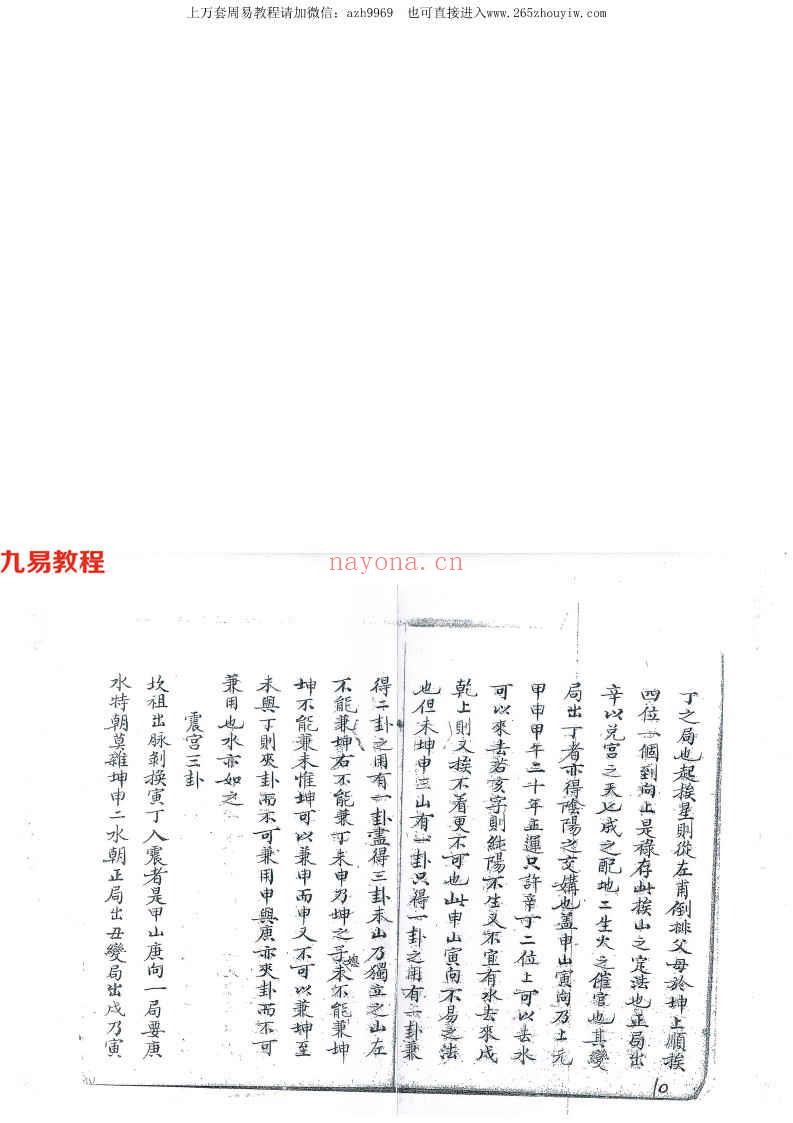 上万套周易教程请加微信：azh9969 也可直接进入www.265zhouyiw.com
九易教程
nayona.cn
丁之局也起挨星則從左甫倒排父母於坤上順挨
四位一個到向上是祿存此挨山之定法也正局出
辛以兌宮之天七成之配地二生火之催官也其變
局出丁者亦得陰陽之交媾也蓋申山寅向乃上元
甲申甲午二十年正運只許辛丁二位上可以去水
可以來去若亥字則純陽不生又不宜有水去來戌
乾上則又挨不着更不可也此申山寅向不易之法
也但未坤申三山有一卦只得一卦之用有一卦兼
得二卦之用有一卦盡得三卦未山乃獨立之山左
不能兼坤右不能兼丁未申乃坤之子未不能兼坤
坤不能兼未惟坤可以兼申而申又不可以兼坤至
未與丁則夾卦而不可兼用申與庚亦夾卦而不可
兼用也水亦如之
震宮三卦
坎祖出脉剝換寅丁入震者是甲山庚向一局要庚
水特朝莫雜坤申二水朝正局出丑變局出戌乃寅
10